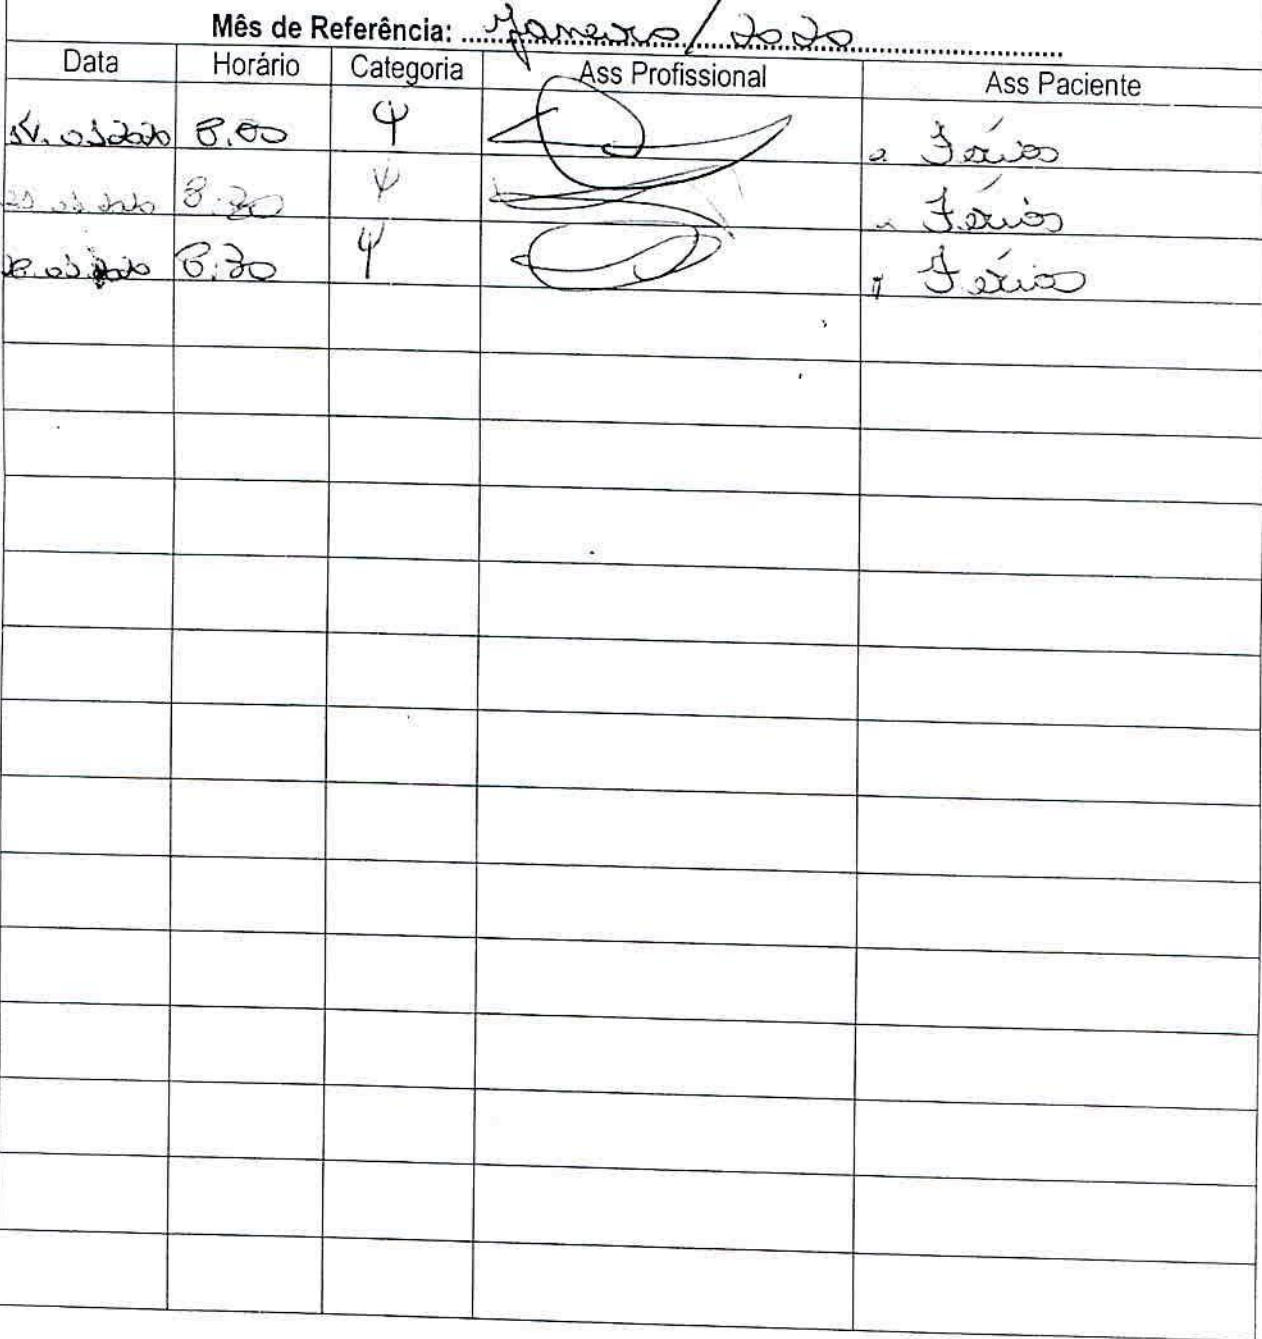 Mês de Referência: Janeiro / 2020
Data Horário Categoria Ass Profissional Ass Paciente
14.01.2020 8:00 Ψ Férias
21.01.2020 8:30 Ψ Férias
28.01.2020 8:30 Ψ Férias